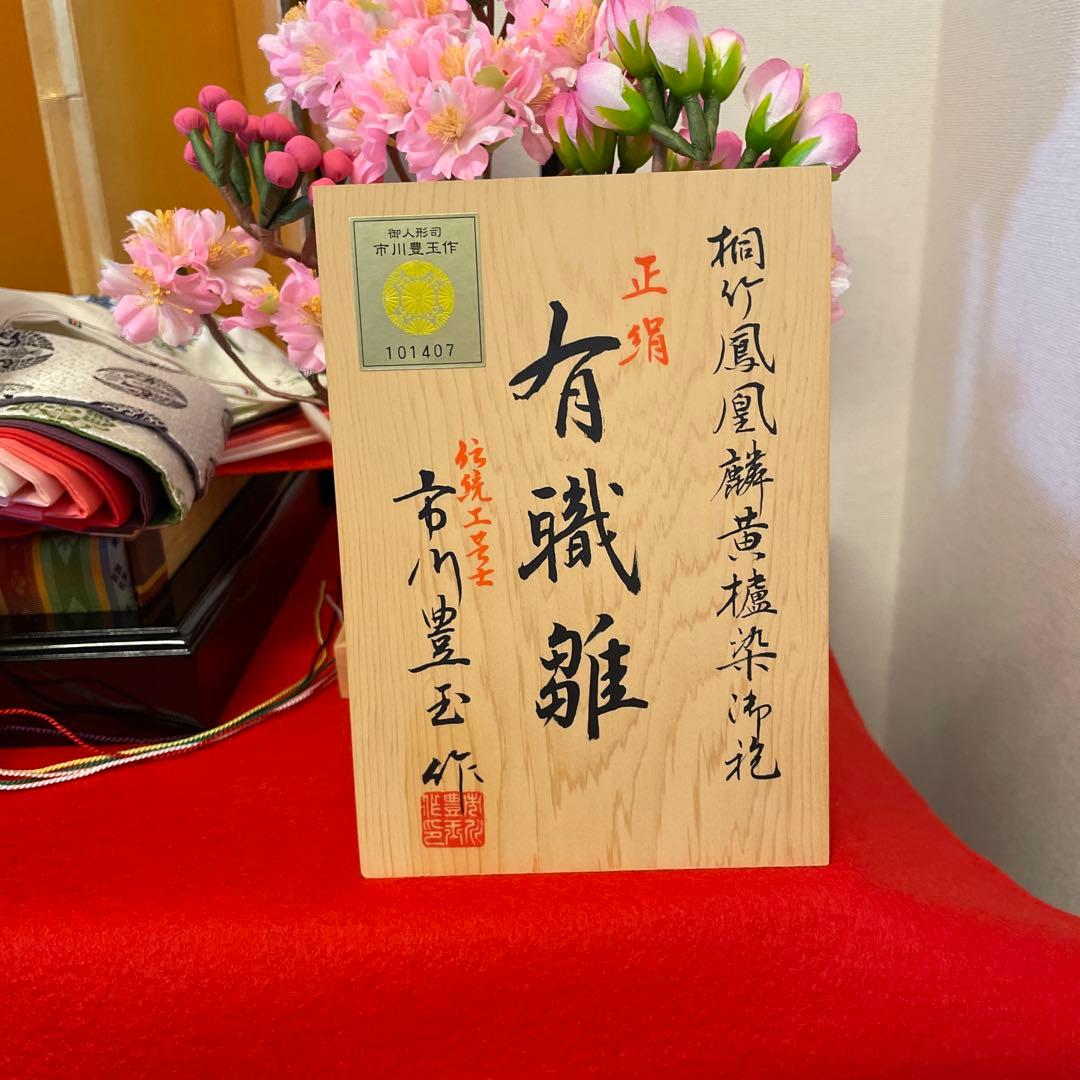 桐竹鳳凰麟黄櫨染御袍
正絹
有職雛
伝統工芸士
市川豊玉作
御人形司
市川豊玉作
101407